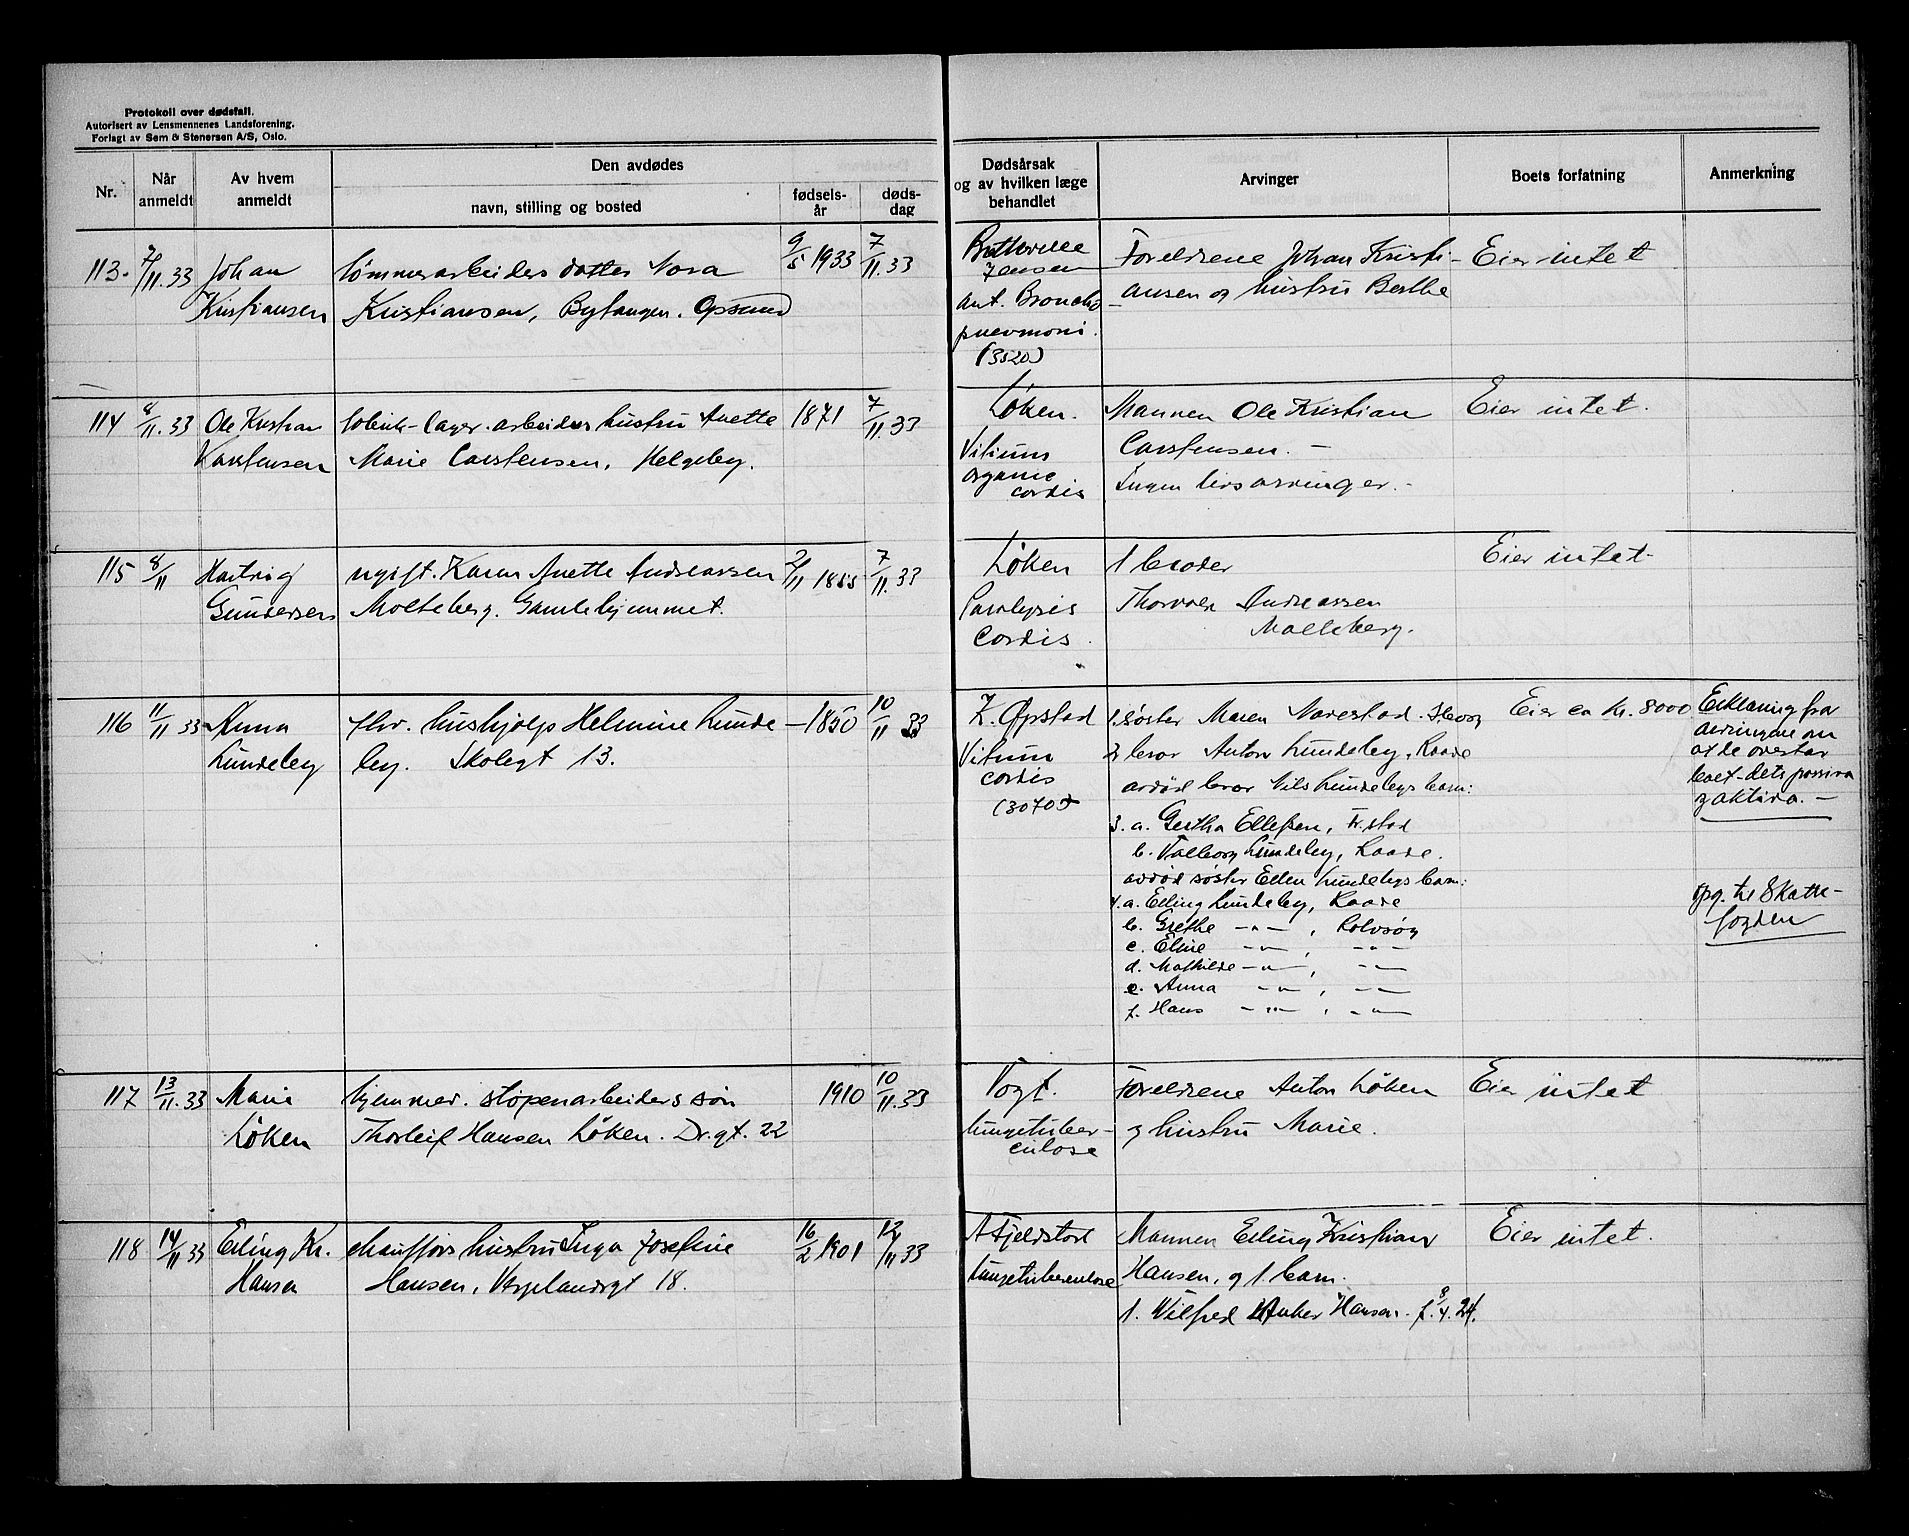 Protokoll over dødsfall.
Autorisert av Lensmennenes Landsforening.
Forlagt av Sem & Stenersen A/S, Oslo.
Nr.
Når anmeldt
Av hvem anmeldt
Den avdødes
navn, stilling og bosted
fødsels-år
døds-dag
Dødsårsak og av hvilken læge behandlet
Arvinger
Boets forfatning
Anmerkning
113. 7/11.33 Johan tømmerarbeiders datter Nora 9/5 1933 7/11.33
Kristiansen Kristiansen, Bytangen. Opsund
Jensen
ant. Broncho
pnevmoni.
(3520)
Foreldrene Johan Kristi-
ansen og hustru Berthe
Eier intet
114 8/11.33 Ole Kristian lager.arbeiders hustru Anette 1871 7/11.33
Karstensen Marie Carstensen, Helgeby.
Løken.
Vitium
organic
cordis
Mannen Ole Kristian
Carstensen. —
Ingen livsarvinger. -
Eier intet.
115 8/11 Hartvig ugift. Karen Anette Andreassen 2/11 1855 7/11.33
Gundersen Molteberg. Gamlehjemmet.
Løken
Paralysis
Cordis.
1 broder
Thorvald Andreassen
Molteberg.
Eier intet-
116 11/11 33 Anna fhv. hushjelp Helmine Lunde — 1850 10/11 33
Lundeby by. Skolegt 13.
K. Opstad
Vitium
cordis
(3070)
1. søster Maren Navestad.
2 bror Anton Lundeby, Raade
avdød bror Nils Lundebys barn:
3. a. Gertha Ellefsen, Fr.stad
b. Valborg Lundeby, Raade.
avdød søster Ellen Lundebys barn:
4. a. Elling Lundeby, Raade
b. Grethe -"- , Rolvsøy
c. Eline -"- , -"-
d. Mathilde -"- , -"-
e. Anna -"- , -"-
f. Hans -"- , -"-
Eier ca Kr. 8000
Erklæring fra
arvingene om
at de overtar
boet-dets passiva
og aktiva. —
opg. til Skatte-
fogden
117 13/11.33 Marie hjemmev. støperiarbeiders søn 1910 10/11.33
Løken Thorleif Hansen Løken. Dr.gt. 22
Vogt.
lungetuber-
culose
Foreldrene Anton Løken
og hustru Marie.
Eier intet
118 14/11 33 Erling Kr. chaufførs hustru Inga Josefine 16/2 1901 12/11 33
Hansen Hansen, Vergelandsgt 18.
A Fjeldstad
Lungetuberculose
Mannen Erling Kristian
Hansen, og 1 barn.
1. Wilfred Anker Hansen. f. 3/4.24.
Eier intet.